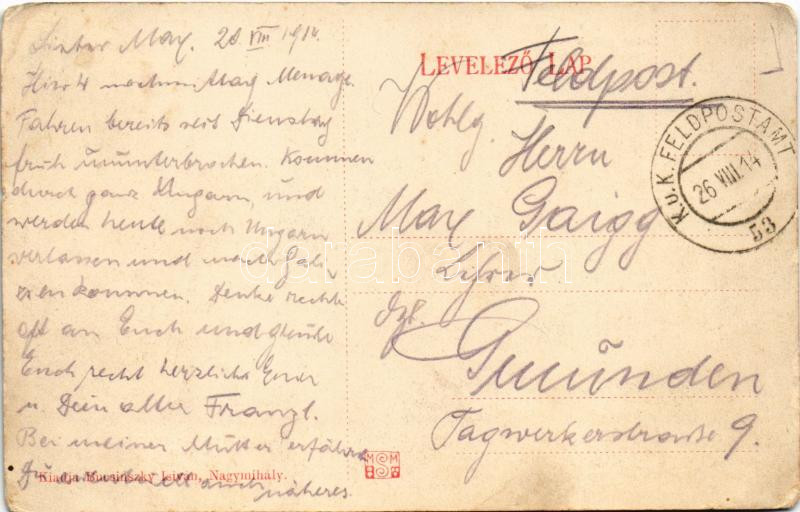 Lieber Max. 20. VIII 1914.
Hier nachmittag Menage.
Fahren bereits seit Dienstag
früh ununterbrochen. Kommen
durch ganz Ungarn, und
werden heute noch Ungarn
verlassen und nach Gali-
zien kommen. Denke recht
oft an Euch und grüße
Euch recht herzlichst Euer
u. Dein alter Franzl.
Bei meiner Mutter erfährst
Du auch näheres.
Kiadja Bucsinszky István, Nagymihály.
MSM
LEVELEZŐ LAP
Feldpost.
Wohlg.
Herrn
Max Gaigg
Gmünden
Tagwerkerstraße 9.
K.u.K. FELDPOSTAMT
26 VIII 14
53
darabanth